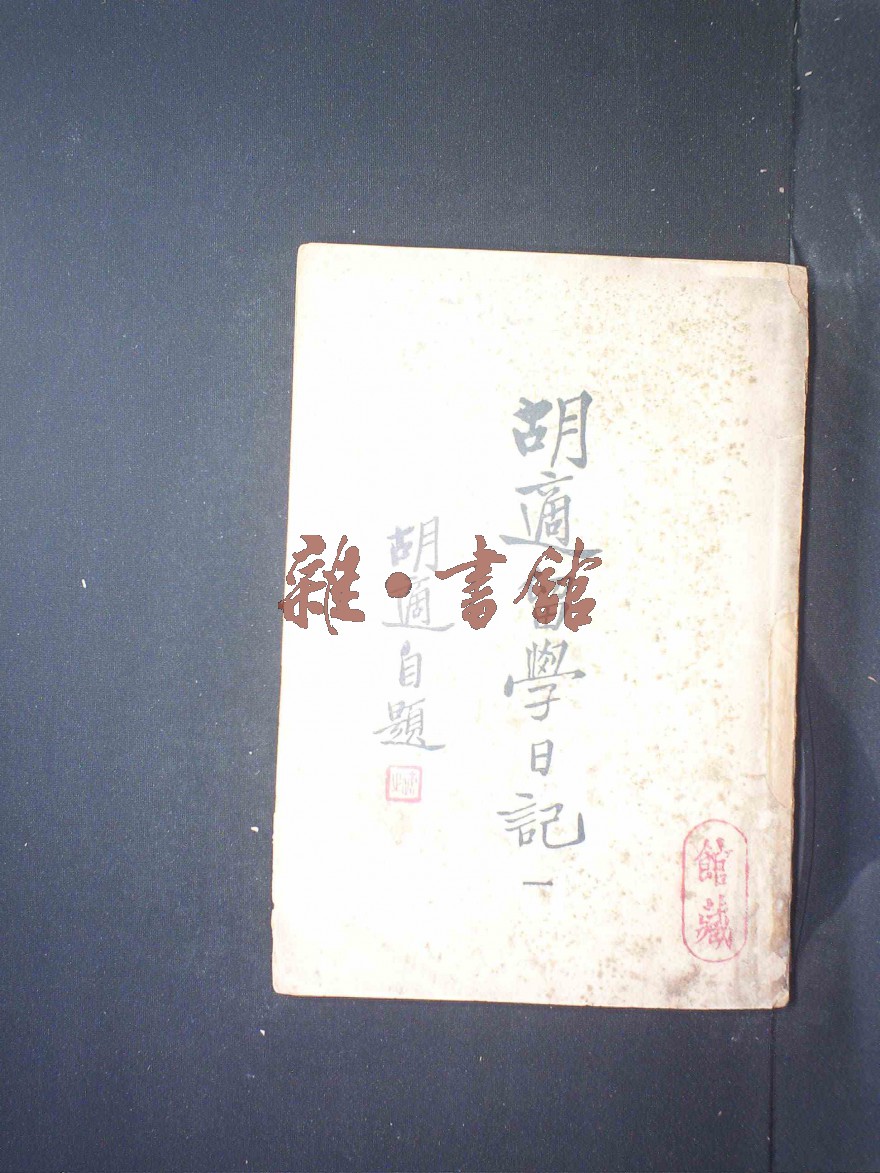 胡適留學日記
一
胡適自題
館藏
雜·書館